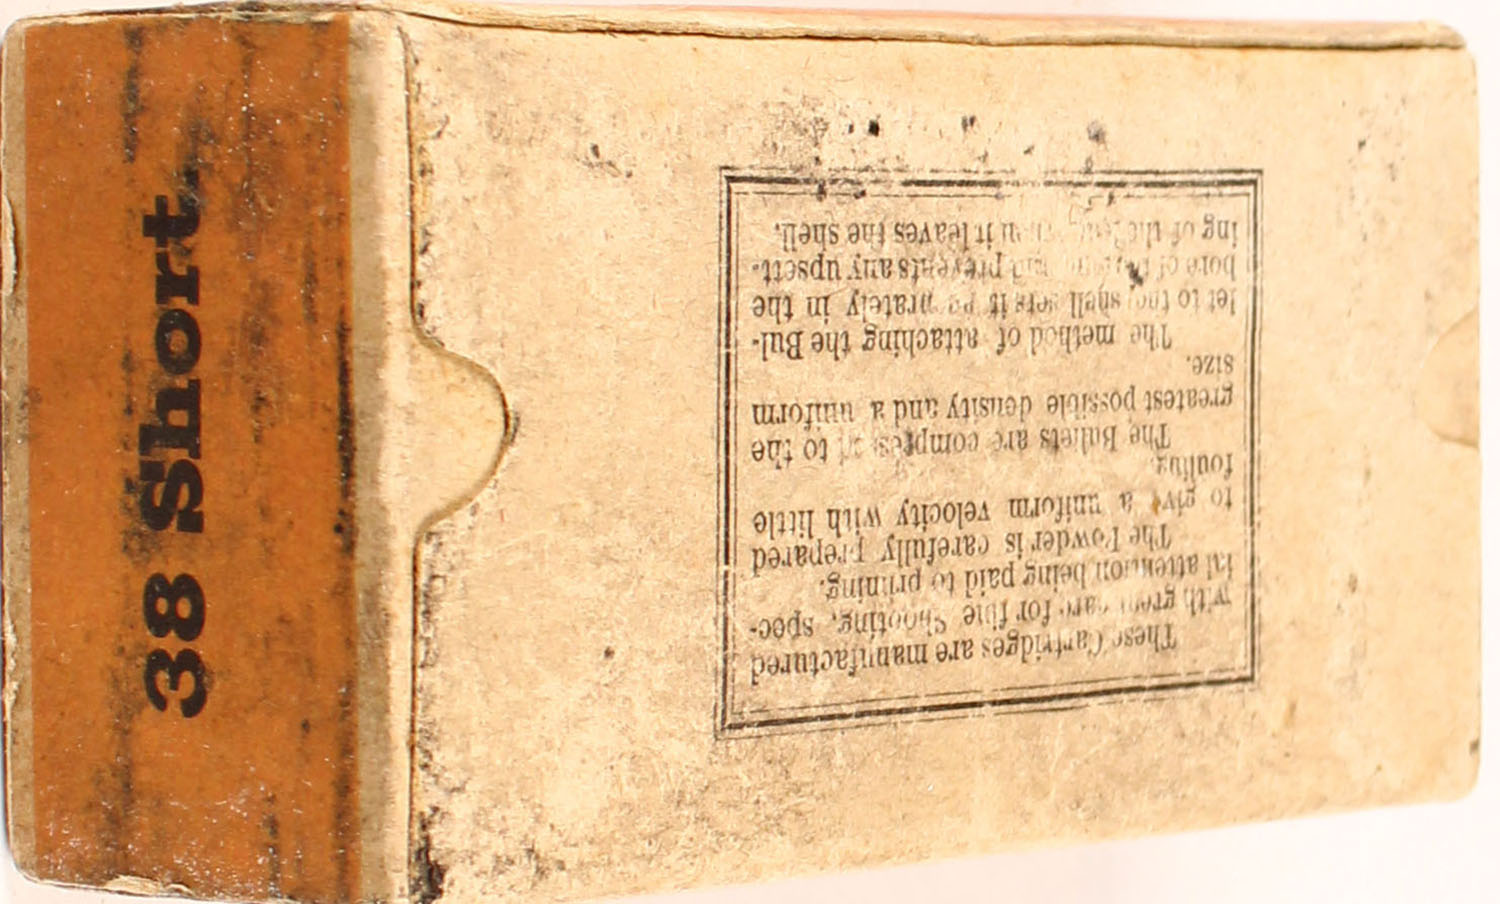 38 Short
These Cartridges are manufactured
with great care for fine Shooting, spec-
ial attention being paid to priming.
The Powder is carefully prepared
to give a uniform velocity with little
fouling.
The Bullets are compressed to the
greatest possible density and a uniform
size.
The method of attaching the Bul-
let to the shell sets it in the
bore of and prevents any upsett-
ing of the when it leaves the shell.